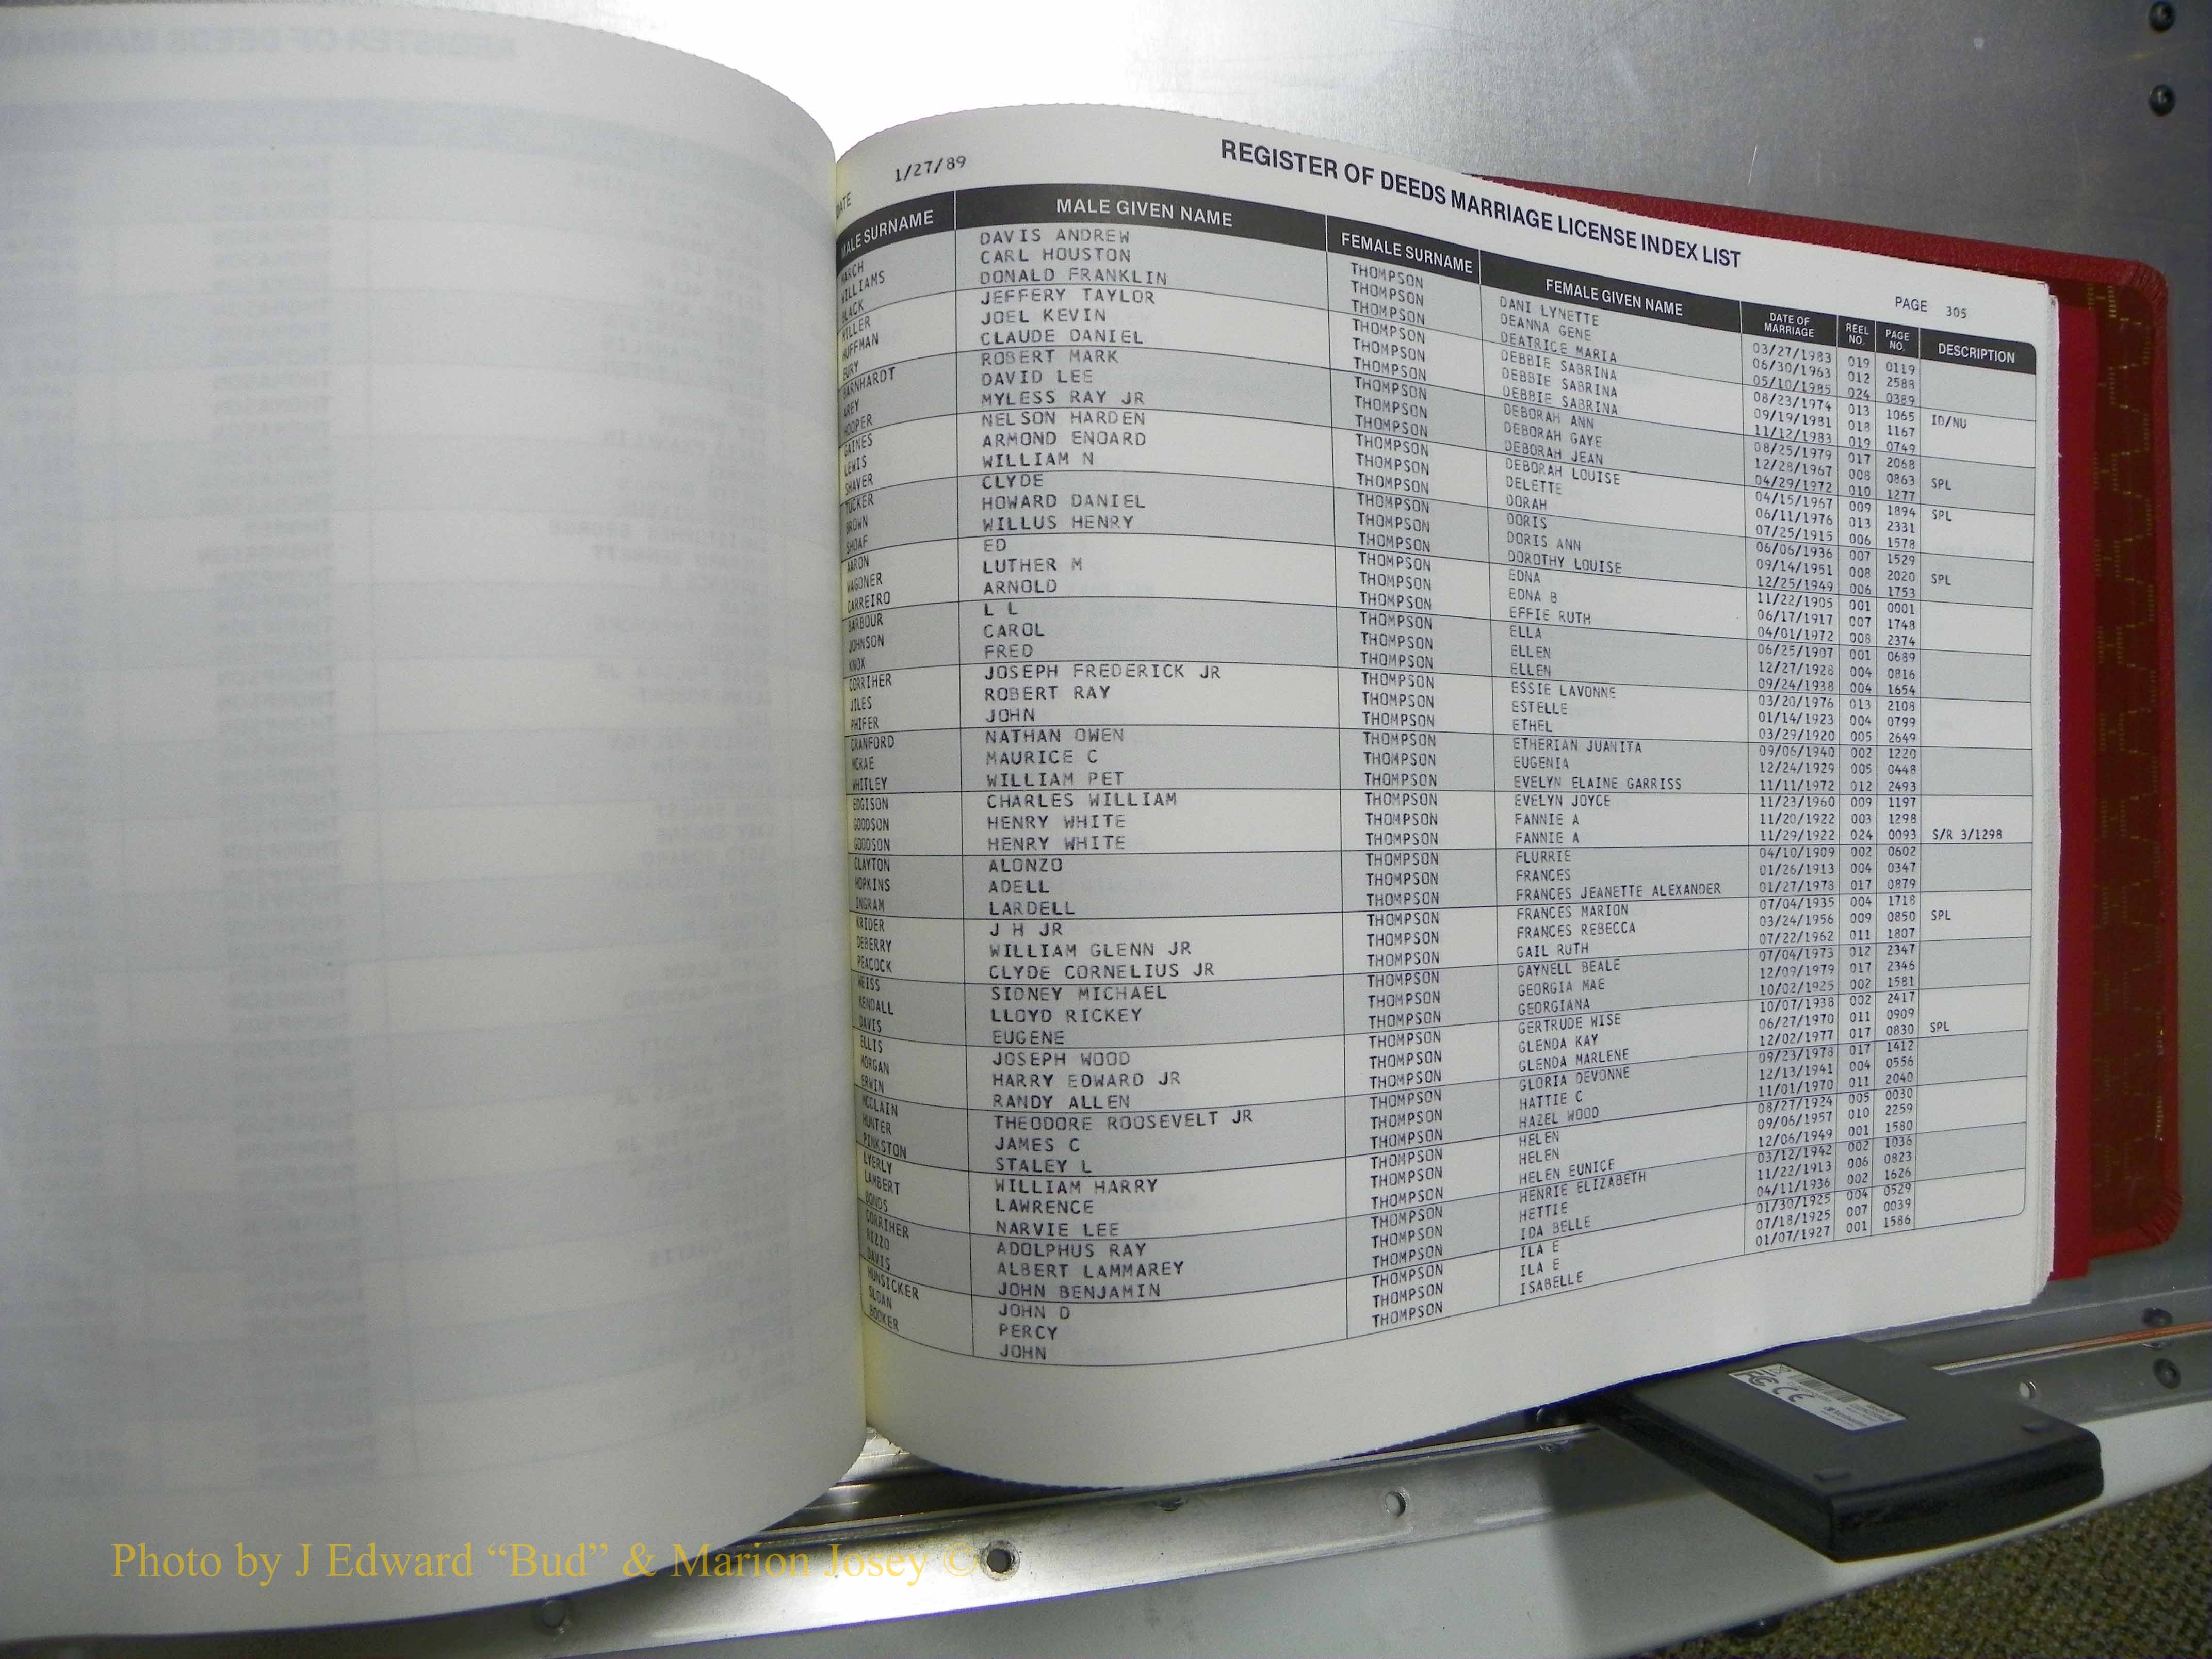 DATE 1/27/89
REGISTER OF DEEDS MARRIAGE LICENSE INDEX LIST
PAGE 305
MALE SURNAME MALE GIVEN NAME FEMALE SURNAME FEMALE GIVEN NAME DATE OF MARRIAGE REEL NO. PAGE NO. DESCRIPTION
MARCH DAVIS ANDREW THOMPSON DANI LYNETTE 03/27/1983 019 0119
WILLIAMS CARL HOUSTON THOMPSON DEANNA GENE 06/30/1963 012 2588
BLACK DONALD FRANKLIN THOMPSON DEATRICE MARIA 05/10/1985 024 0389
MILLER JEFFERY TAYLOR THOMPSON DEBBIE SABRINA 08/23/1974 013 1065 ID/NU
HUFFMAN JOEL KEVIN THOMPSON DEBBIE SABRINA 09/19/1981 018 1167
EURY CLAUDE DANIEL THOMPSON DEBBIE SABRINA 11/12/1983 019 0749
BARNHARDT ROBERT MARK THOMPSON DEBORAH ANN 08/25/1979 017 2068
AREY DAVID LEE THOMPSON DEBORAH GAYE 12/28/1967 008 0863 SPL
HOOPER MYLESS RAY JR THOMPSON DEBORAH JEAN 04/29/1972 010 1277
GAINES NELSON HARDEN THOMPSON DEBORAH LOUISE 04/15/1957 009 1894 SPL
LEWIS ARMOND ENOARD THOMPSON DELETTE 06/11/1976 013 2331
SHAVER WILLIAM N THOMPSON DORAH 07/25/1915 006 1578
TUCKER CLYDE THOMPSON DORIS 06/06/1936 007 1529
BROWN HOWARD DANIEL THOMPSON DORIS ANN 09/14/1951 008 2020 SPL
SHOAF WILLUS HENRY THOMPSON DOROTHY LOUISE 12/25/1949 006 1753
AARON ED THOMPSON EDNA 11/22/1905 001 0001
WAGONER LUTHER M THOMPSON EDNA B 06/17/1917 007 1748
CARREIRO ARNOLD THOMPSON EFFIE RUTH 04/01/1972 008 2374
BARBOUR L L THOMPSON ELLA 06/25/1907 001 0689
JOHNSON CAROL THOMPSON ELLEN 12/27/1928 004 0816
KNOX FRED THOMPSON ELLEN 09/24/1938 004 1654
CORRIHER JOSEPH FREDERICK JR THOMPSON ESSIE LAVONNE 03/20/1976 013 2108
JILES ROBERT RAY THOMPSON ESTELLE 01/14/1923 004 0799
PHIFER JOHN THOMPSON ETHEL 03/29/1920 005 2649
CRANFORD NATHAN OWEN THOMPSON ETHERIAN JUANITA 09/06/1940 002 1220
MCRAE MAURICE C THOMPSON EUGENIA 12/24/1929 005 0448
WHITLEY WILLIAM PET THOMPSON EVELYN ELAINE GARRISS 11/11/1972 012 2493
EDGISON CHARLES WILLIAM THOMPSON EVELYN JOYCE 11/23/1960 009 1197
GOODSON HENRY WHITE THOMPSON FANNIE A 11/20/1922 003 1298
GOODSON HENRY WHITE THOMPSON FANNIE A 11/29/1922 024 0093 S/R 3/1298
CLAYTON ALONZO THOMPSON FLURRIE 04/10/1909 002 0602
HOPKINS ADELL THOMPSON FRANCES 01/26/1913 004 0347
INGRAM LARDELL THOMPSON FRANCES JEANETTE ALEXANDER 01/27/1978 017 0879
KRIDER J H JR THOMPSON FRANCES MARION 07/04/1935 004 1718
DEBERRY WILLIAM GLENN JR THOMPSON FRANCES REBECCA 03/24/1956 009 0850 SPL
PEACOCK CLYDE CORNELIUS JR THOMPSON GAIL RUTH 07/22/1962 011 1807
WEISS SIDNEY MICHAEL THOMPSON GAYNELL BEALE 07/04/1973 012 2347
KENDALL LLOYD RICKEY THOMPSON GEORGIA MAE 12/09/1979 017 2346
DAVIS EUGENE THOMPSON GEORGIANA 10/02/1925 002 1581
ELLIS JOSEPH WOOD THOMPSON GERTRUDE WISE 10/07/1938 002 2417
MORGAN HARRY EDWARD JR THOMPSON GLENDA KAY 06/27/1970 011 0909
ERWIN RANDY ALLEN THOMPSON GLENDA MARLENE 12/02/1977 017 0830 SPL
MCCLAIN THEODORE ROOSEVELT JR THOMPSON GLORIA DEVONNE 09/23/1978 017 1412
HUNTER JAMES C THOMPSON HATTIE C 12/13/1941 004 0556
PINKSTON STALEY L THOMPSON HAZEL WOOD 11/01/1970 011 2040
LYERLY WILLIAM HARRY THOMPSON HELEN 08/27/1924 005 0030
LAMBERT LAWRENCE THOMPSON HELEN 09/06/1957 010 2259
BONDS NARVIE LEE THOMPSON HELEN EUNICE 12/06/1949 001 1580
CORRIHER ADOLPHUS RAY THOMPSON HENRIE ELIZABETH 03/12/1942 002 1036
RIZZO ALBERT LAMMAREY THOMPSON HETTIE 11/22/1913 006 0823
DAVIS JOHN BENJAMIN THOMPSON IDA BELLE 04/11/1936 002 1626
HUNSICKER JOHN D THOMPSON ILA E 01/30/1925 004 0529
SLOAN PERCY THOMPSON ILA E 07/18/1925 007 0039
BOOKER JOHN THOMPSON ISABELLE 01/07/1927 001 1586
Photo by J Edward “Bud” & Marion Josey ©